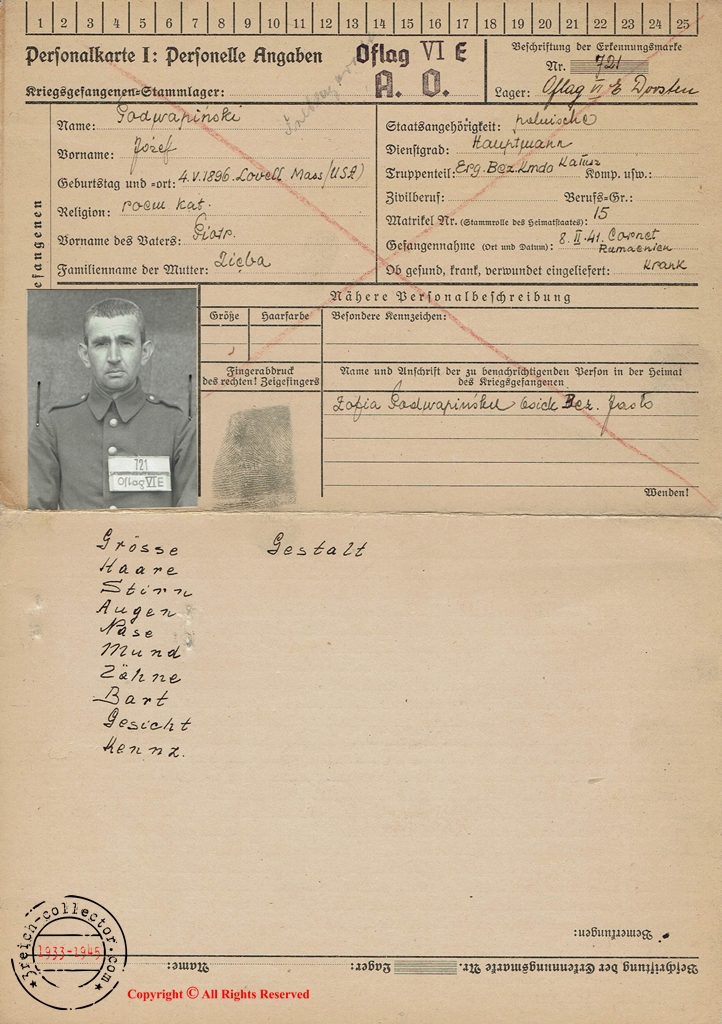 1 2 3 4 5 6 7 8 9 10 11 12 13 14 15 16 17 18 19 20 21 22 23 24 25
Personalkarte I: Personelle Angaben
Kriegsgefangenen-Stammlager:
Oflag VI E
A. O.
Beschriftung der Erkennungsmarke
Nr. 721
Lager: Oflag VI E Dorsten
efangenen
Name: Podwapiński
Vorname: Józef
Geburtstag und -ort: 4.V.1896. Lovell Mass/USA)
Religion: roem kat.
Vorname des Vaters: Piotr.
Familienname der Mutter: Zięba
Staatsangehörigkeit: polnische
Dienstgrad: Hauptmann
Truppenteil: Erg. Bez. Kmdo Kalusz Komp. usw.:
Zivilberuf: Berufs-Gr.:
Matrikel Nr. (Stammrolle des Heimatstaates): 15
Gefangennahme (Ort und Datum): 8.II.41. Cornet Rumaenien
Ob gesund, krank, verwundet eingeliefert: krank
Nähere Personalbeschreibung
Größe Haarfarbe
Besondere Kennzeichen:
Fingerabdruck
des rechten! Zeigefingers
Name und Anschrift der zu benachrichtigenden Person in der Heimat
des Kriegsgefangenen
Zofia Podwapińska Osiek Bez. Jasło
721
Oflag VI E
Wenden!
Grösse Gestalt
Haare
Stirn
Augen
Nase
Mund
Zähne
Bart
Gesicht
Kennz.
Bemerkungen:
Beschriftung der Erkennungsmarke Nr. Lager: Name:
3reich-collector.com
1933-1945
Copyright © All Rights Reserved